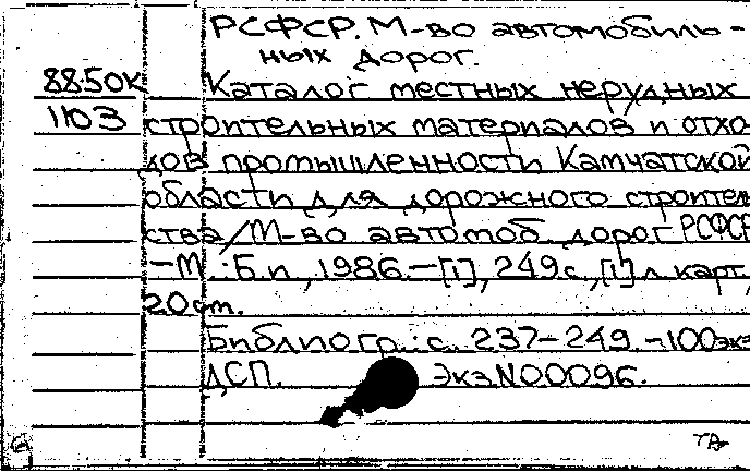 РСФСР. М-во автомобиль-
ных дорог.
88.50К Каталог местных нерудных
1103 строительных материалов и отхо
дов промышленности Камчатской
области для дорожного строитель
ства/М-во автомоб. дорог РСФСР
-М.:Б.и.,1986.-[1],249с.,[1]л.карт,
20см.
Библиогр.:с. 237-249.-100экз
ДСП. Экз.N00096.